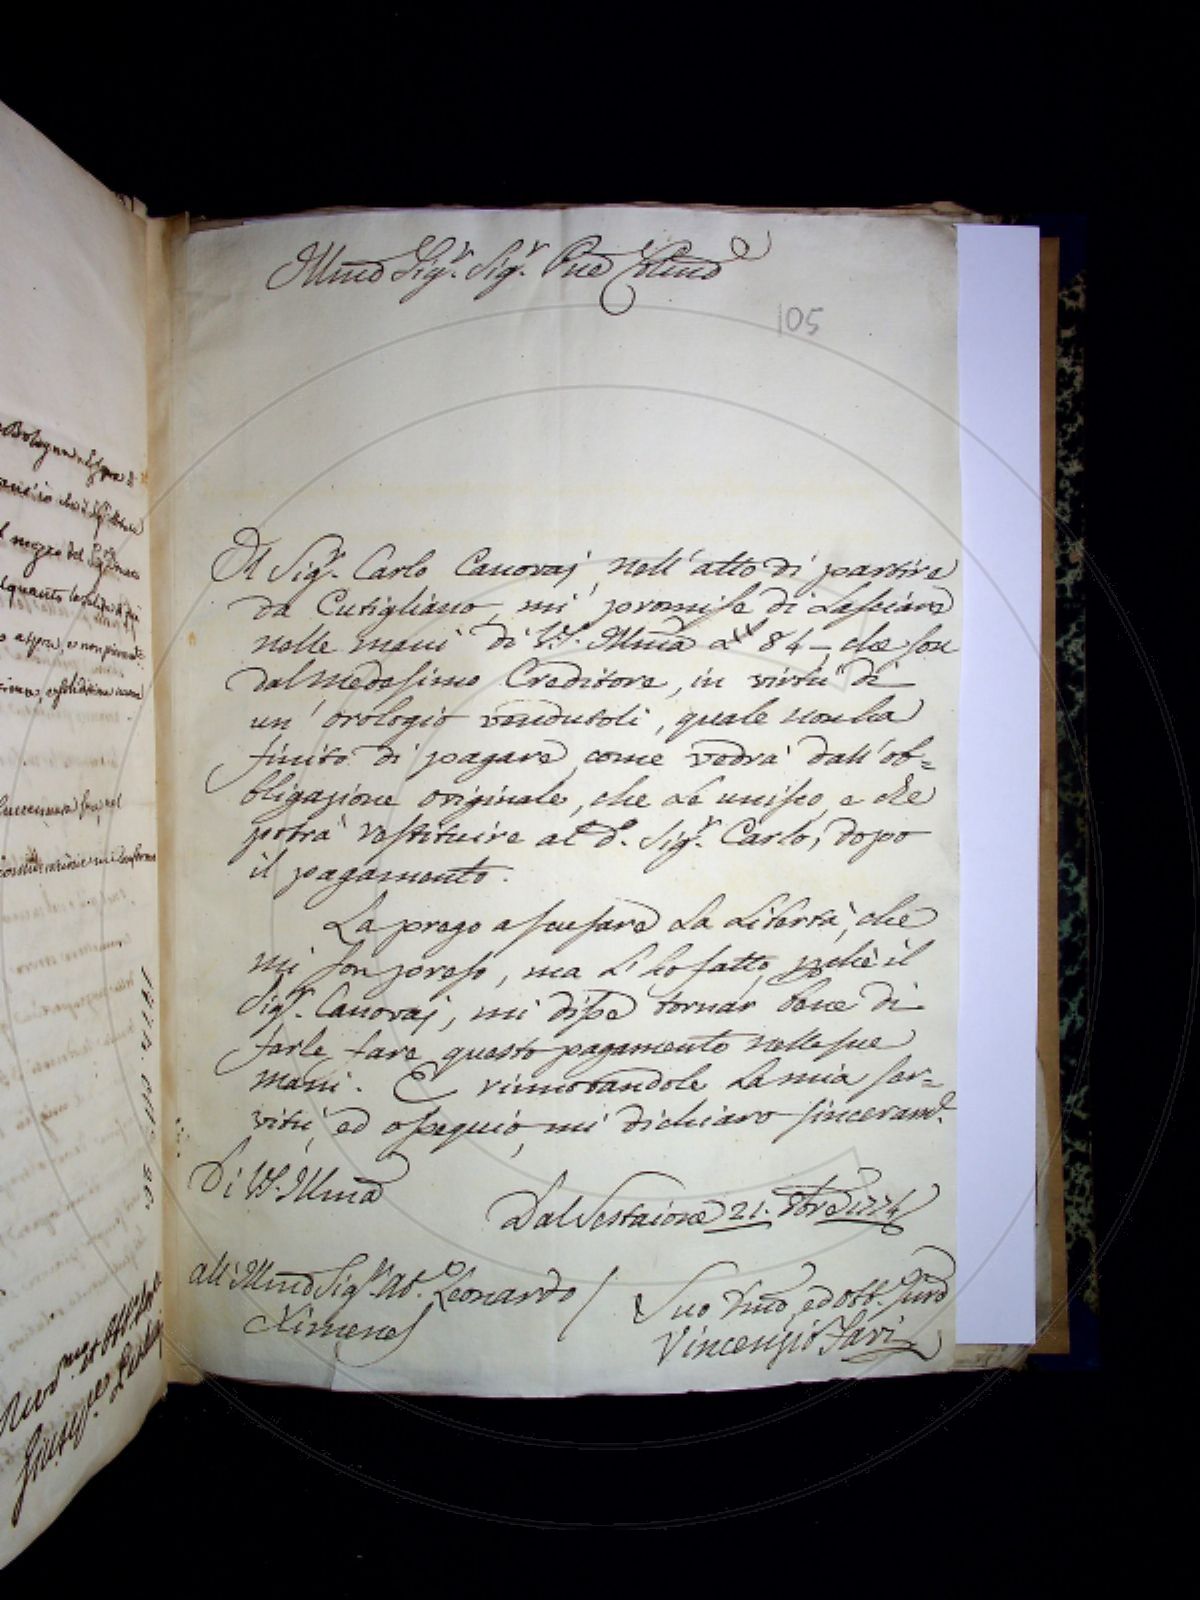 Illmo Sigr. Sigr. Pne Colmo
105
Il Sigr. Carlo Canovaj nell'atto di partire
da Cutigliano, mi promise di Lasciare
nelle mani di V.S. Illma 84 – che son
dal medesimo Creditore, in virtù di
un' orologio vendutoli, quale non ha
finito di pagare, come vedrà dall'ob=
bligazione originale, che Le unisco, e che
potrà restituire al do. Sigr. Carlo, dopo
il pagamento.
La prego a scusare La Libertà, che
mi son preso, ma L'ho fatto, perchè il
Sigr. Canovaj, mi disse tornar bene di
farle fare questo pagamento nelle sue
mani. E rinnovandole La mia ser=
vitù, ed ossequio, mi dichiaro sinceramte.
Di V.S. Illma
Dal Sestaione 21. 8bre 1774
all'Illmo Sigr. Ab. Leonardo
Ximenes
Suo Dmo, ed Obb. Servo
Vincenzio
Bologna
mezzo del
1774. Ott. 26.